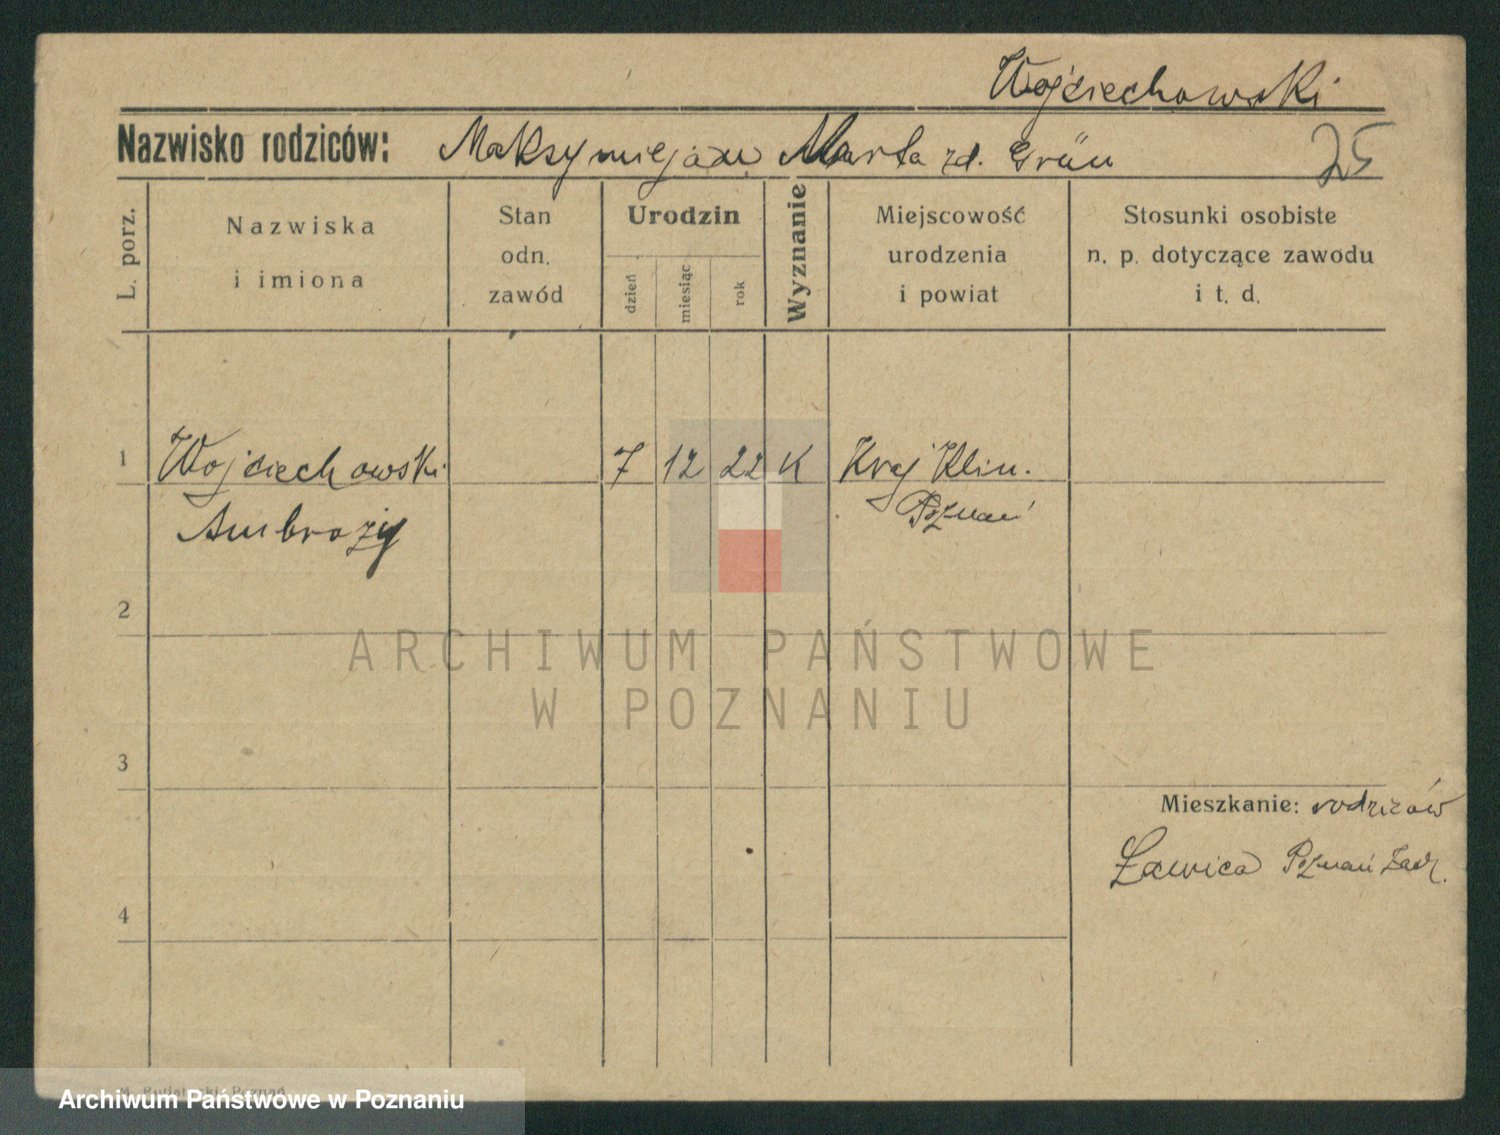 Wojciechowski
Nazwisko rodziców: Maksymiejan Marta zd. Grün 25
L. porz.
Nazwiska
i imiona
Stan
odn.
zawód
Urodzin
dzień
miesiąc
rok
Wyznanie
Miejscowość
urodzenia
i powiat
Stosunki osobiste
n. p. dotyczące zawodu
i t. d.
1 Wojciechowski 7 12 22 K Klin.
Ambroży Poznań
2
ARCHIWUM PAŃSTWOWE
W POZNANIU
3
Mieszkanie: rodziców
Ławica Poznań Zach.
4
Poznań
Archiwum Państwowe w Poznaniu